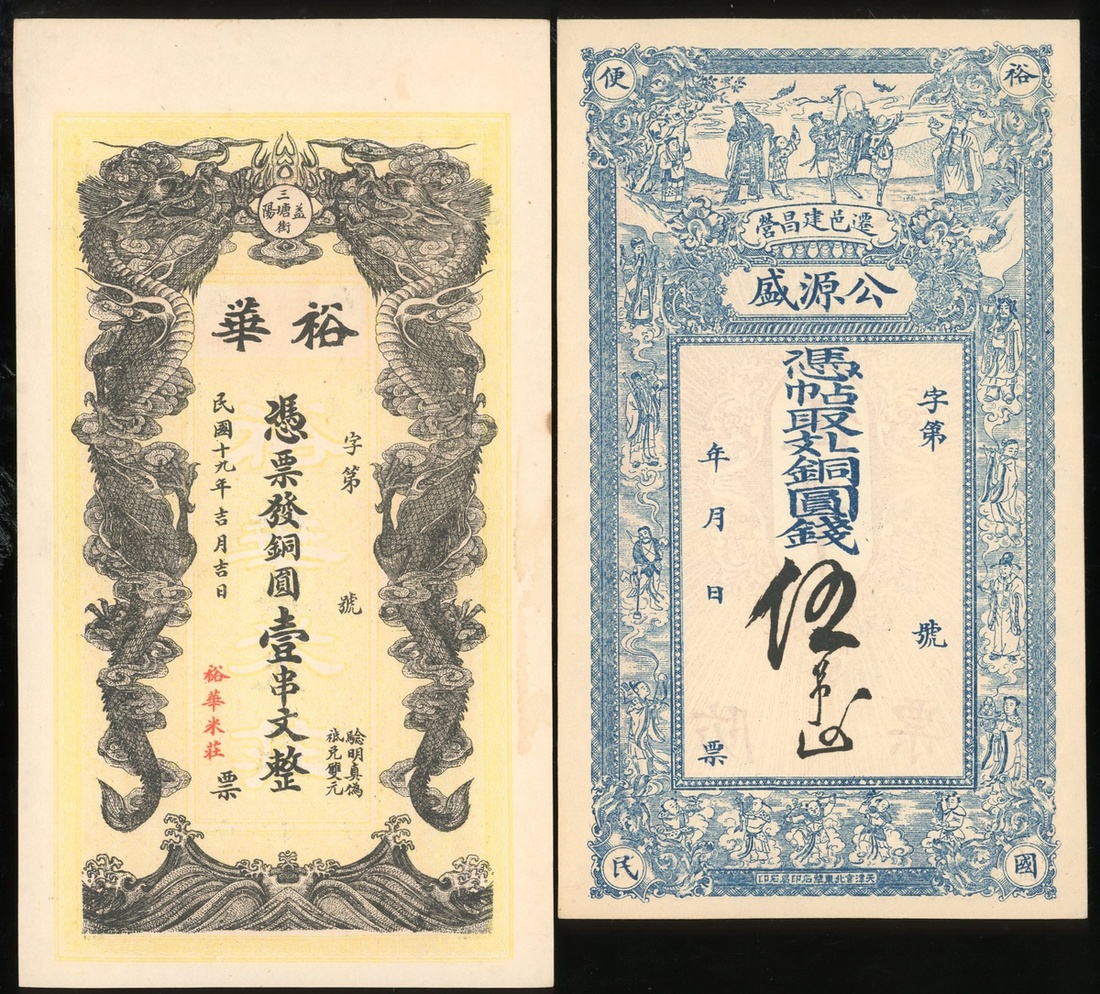 益陽
三塘街
裕華
字第 號
憑票發銅圓壹串文整
驗明真偽
祇兌雙元
民國十九年吉月吉日
裕華米莊
票
裕
國
便
民
遷邑建昌營
公源盛
字第 號
憑帖取 銅圓錢
伍吊
年月日
票
天津宮北東華石印局石印